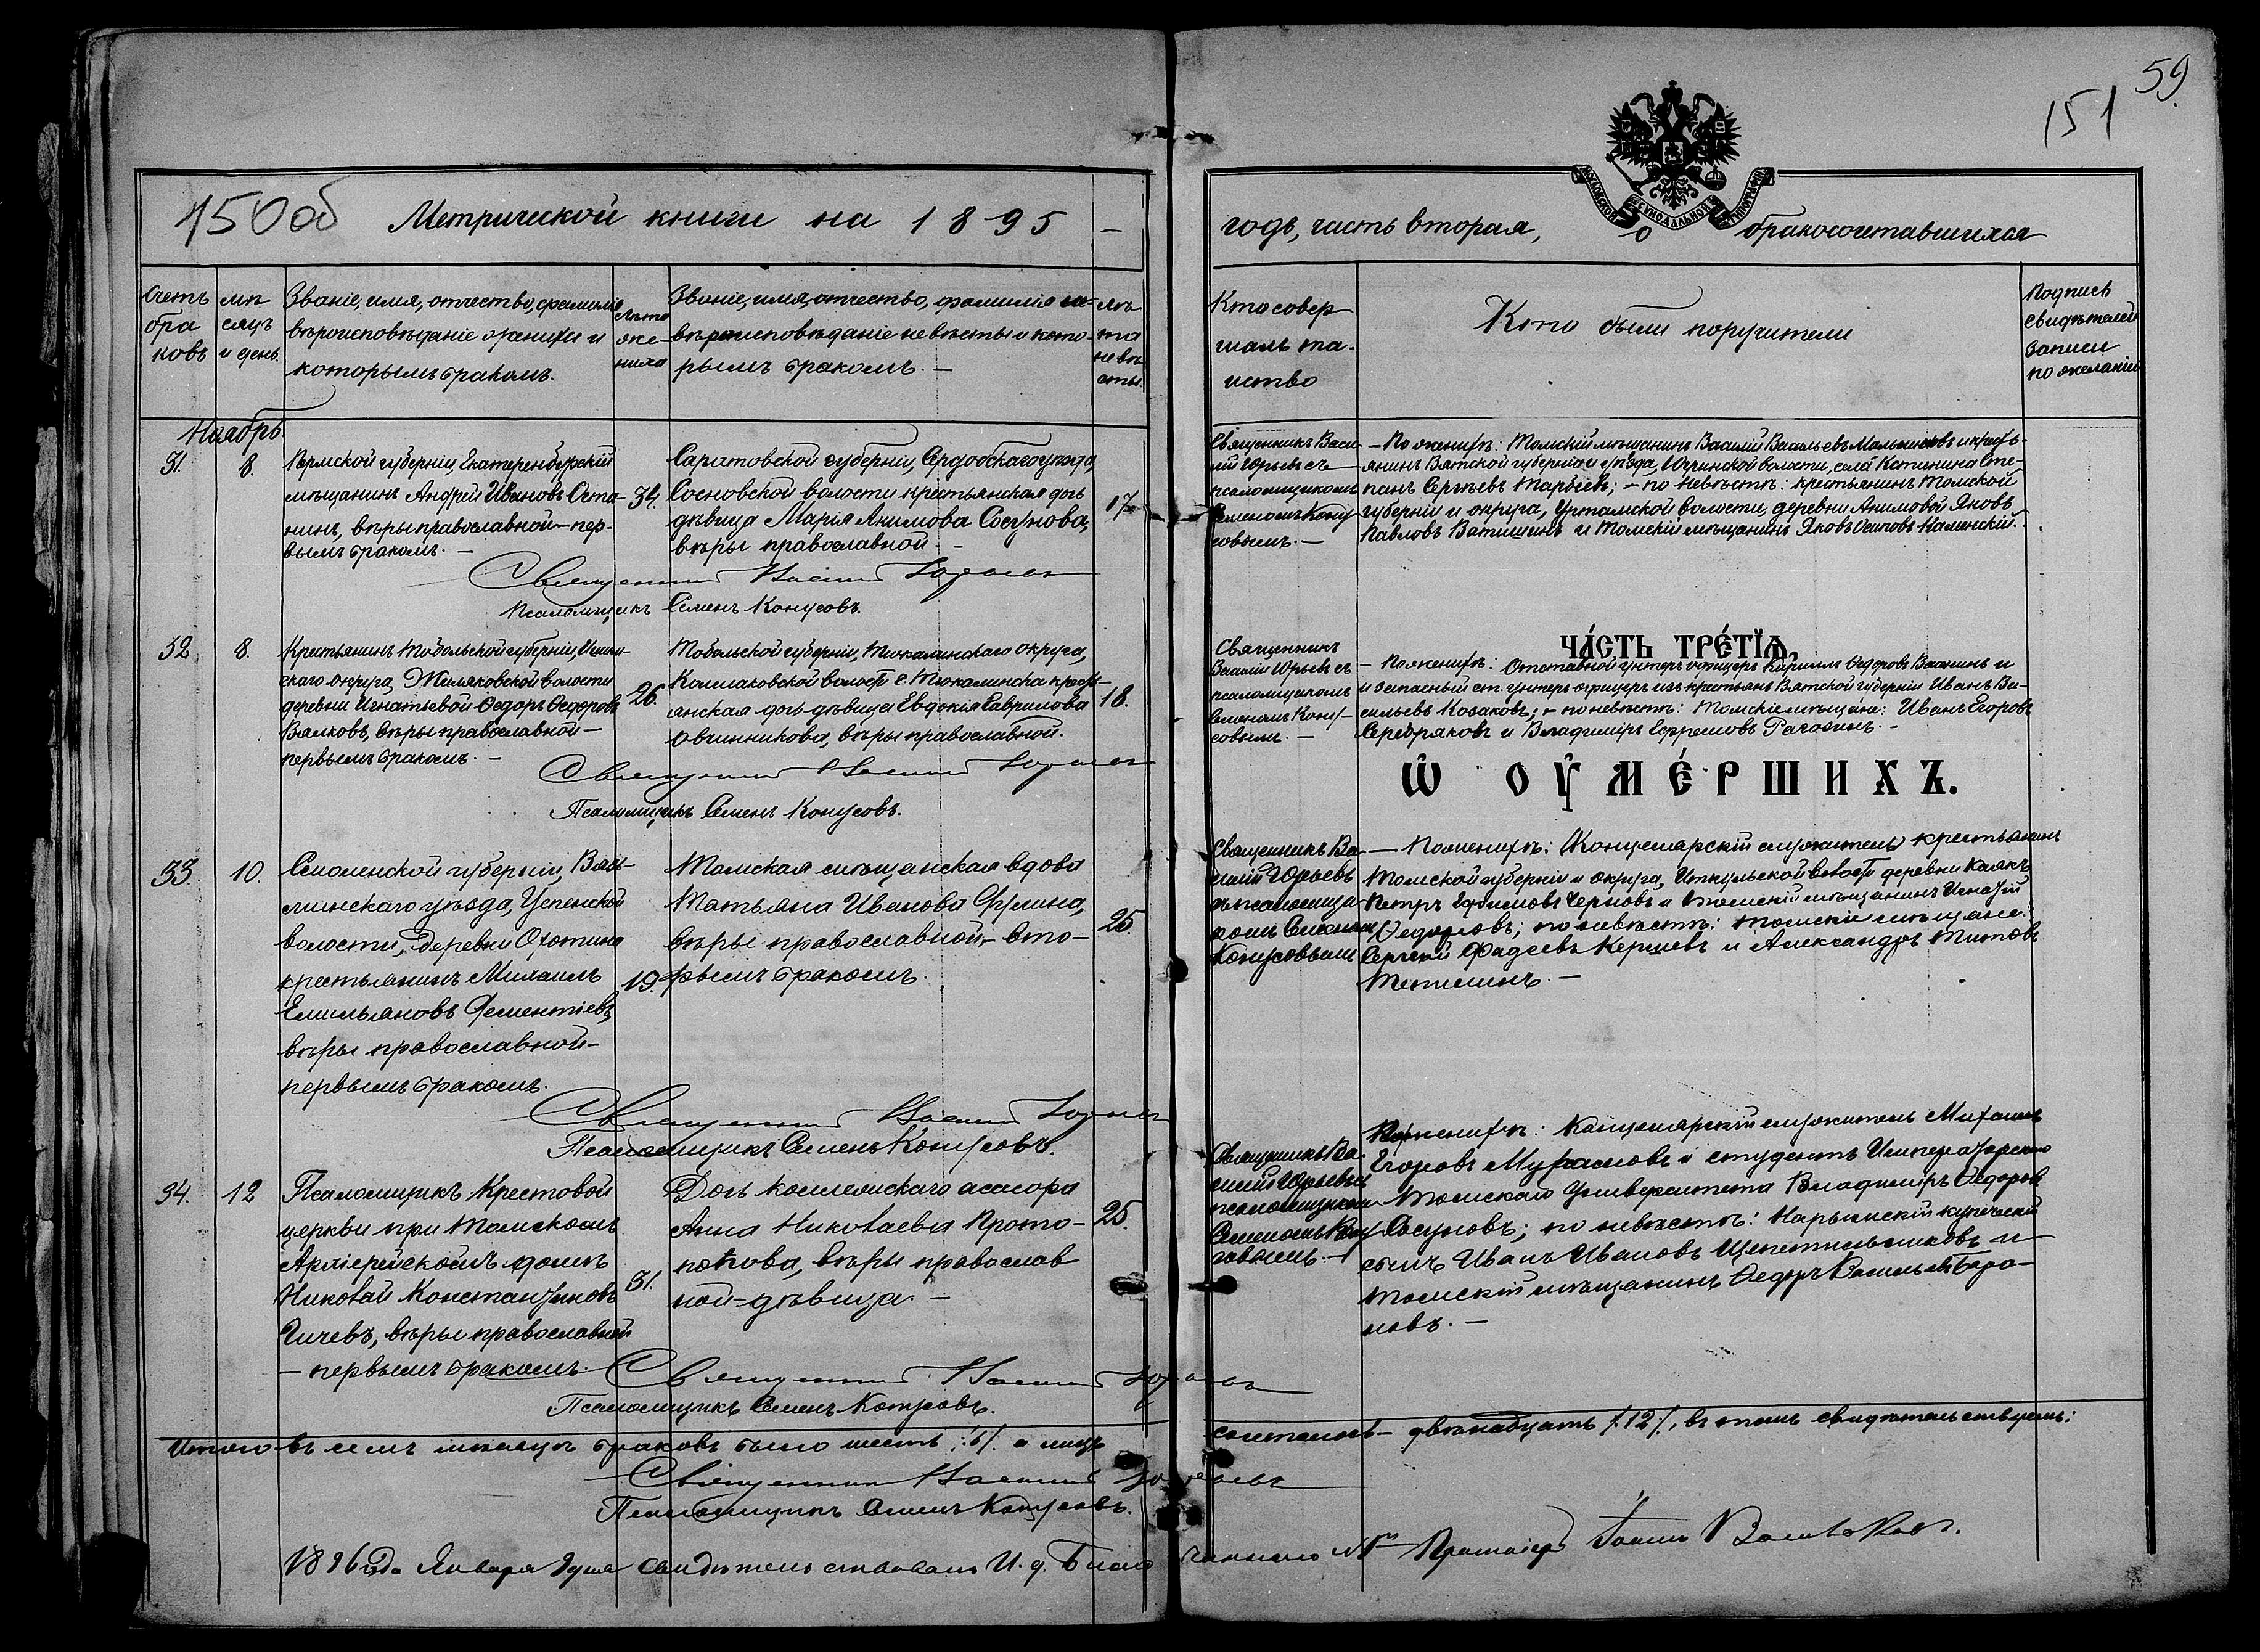 59.
151
150об Метрической книги на 1895
годъ, часть вторая, о бракосочетавшихся
МОСКОВСКОЙ СѴНОДАЛЬНОЙ ТИПОГРАФІИ
Счетъ
бра
ковъ
мѣ
сяцъ
и день.
Званіе, имя, отчество, фамилія
вѣроисповѣданіе жениха и
которымъ бракомъ.
Лѣта
же-
ниха
Званіе, имя, отчество, фамилія
вѣроисповѣданіе невѣсты и кото-
рымъ бракомъ. —
лѣ
та
невѣ
сты.
Кто совер
шалъ та-
инство
Кто были поручители
Подпись
свидѣтелей
записи
по желанію
Ноябрь.
31.
8
Пермской губерніи, Екатеренбургскій
мѣщанинъ Андрей Ивановъ Оста-
нинъ, вѣры православной — пер-
вымъ бракомъ. —
34.
Саратовской губерніи, Сердобскаго уѣзда,
Сосновской волости крестьянская дочь
дѣвица Марія Акимова Сосунова,
вѣры православной. —
17
Священникъ Васи-
лій Юрьевъ съ
псаломщикомъ
Семеномъ Кону-
совымъ. —
— По женихѣ: Томскій мѣщанинъ Василій Васильевъ и кресть-
янинъ Вятской губерніи и уѣзда, волости, села Сте-
панъ Сергѣевъ; — по невѣстѣ: крестьянинъ Томской
губерніи и округа, Уртамской волости, деревни Акимовой Яковъ
Павловъ и Томскій мѣщанинъ Яковъ Осиповъ Каменскій.
Священникъ Василій Юрьевъ
Псаломщикъ Семенъ Конусовъ.
32
8.
Крестьянинъ Тобольской губерніи, Ишим-
скаго округа, Жиляковской волости
деревни Игнатьевой Ѳедоръ Ѳедоровъ
Вялковъ, вѣры православной —
первымъ бракомъ. —
26.
Тобольской губерніи, Тюкалинскаго округа,
волости г. Тюкалинска кресть-
янская дочь дѣвица Евдокія Гаврилова
Овчинникова, вѣры православной.
18.
Священникъ
Василій Юрьевъ съ
псаломщикомъ
Семеномъ Кону-
совымъ. —
ЧАСТЬ ТРЕТІѦ,
— По женихѣ: Отставной унтеръ офицеръ Кириллъ Ѳедоровъ и
и запасный ст. унтеръ офицеръ изъ крестьянъ Вятской губерніи Иванъ Ва-
сильевъ Козаковъ; — по невѣстѣ: Томскіе мѣщане: Иванъ Егоровъ
Серебряковъ и Владиміръ Ефремовъ Рагозинъ. —
Священникъ Василій Юрьевъ
Псаломщикъ Семенъ Конусовъ.
Ѡ ОУМЕРШИХЪ.
33.
10.
Смоленской губерніи, Вязь-
минскаго уѣзда, Успенской
волости, деревни Охотина
крестьянинъ Михаилъ
Емельяновъ Дементіевъ,
вѣры православной —
первымъ бракомъ.
19.
Томская мѣщанская вдова
Татьяна Иванова
вѣры православной, — вто-
рымъ бракомъ.
25.
Священникъ Ва-
силій Юрьевъ
съ псаломщи-
комъ Семеномъ
Конусовымъ
— По женихѣ: (Канцелярскій служитель) крестьянинъ
Томской губерніи и округа, Иткульской волости деревни Каякъ
Петръ Ефимовъ Черновъ и томскій мѣщанинъ Игнатій
Ѳедоровъ; по невѣстѣ: томскіе мѣщане:
Сергѣй Фадеевъ и Александръ Титовъ
—
Священникъ Василій Юрьевъ
Псаломщикъ Семенъ Конусовъ.
34.
12
Псаломщикъ Крестовой
церкви при Томскомъ
Архіерейскомъ домѣ
Николай Константиновъ
вѣры православной
— первымъ бракомъ.
31.
Дочь коллежскаго асасора
Анна Николаева Прото-
попова, вѣры православ
ной — дѣвица. —
25.
Священникъ Ва-
силій Юрьевъ съ
псаломщикомъ
Семеномъ Кону-
совымъ. —
По женихѣ: Канцелярскій служитель Михаилъ
Егоровъ и студентъ Императорскаго
Томскаго Университета Владиміръ Ѳедоровъ
Сосуновъ; по невѣстѣ: Нарымскій купеческій
сынъ Иванъ Ивановъ и
томскій мѣщанинъ Ѳедоръ Васильевъ Бара-
новъ. —
Священникъ Василій Юрьевъ
Псаломщикъ Семенъ Конусовъ.
Итого въ семъ мѣсяцѣ браковъ было шесть /:6/. а лицъ
сочеталось — двѣнадцать /.12/., въ томъ свидѣтельствуемъ:
Священникъ Василій Юрьевъ
Псаломщикъ Семенъ Конусовъ.
1896 года Января дня свидѣтельствовалъ И. д. Благочиннаго Протоіерей Іоаннъ